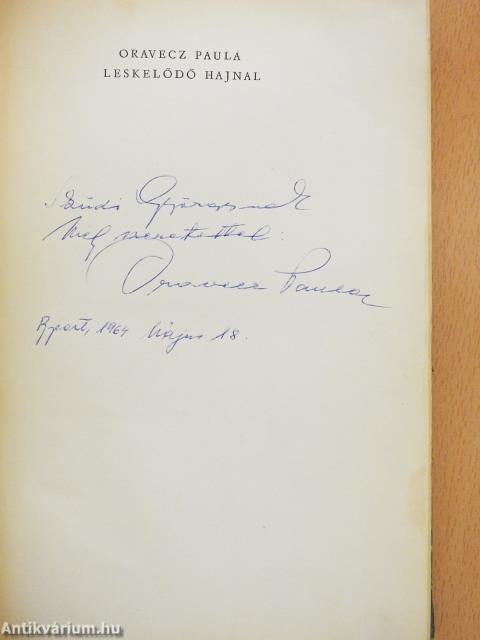 ORAVECZ PAULA
LESKELŐDŐ HAJNAL
Szüdi Györgynek
meleg szeretettel:
Oravecz Paula
Bpest, 1964 Május 18.
Antikvárium.hu